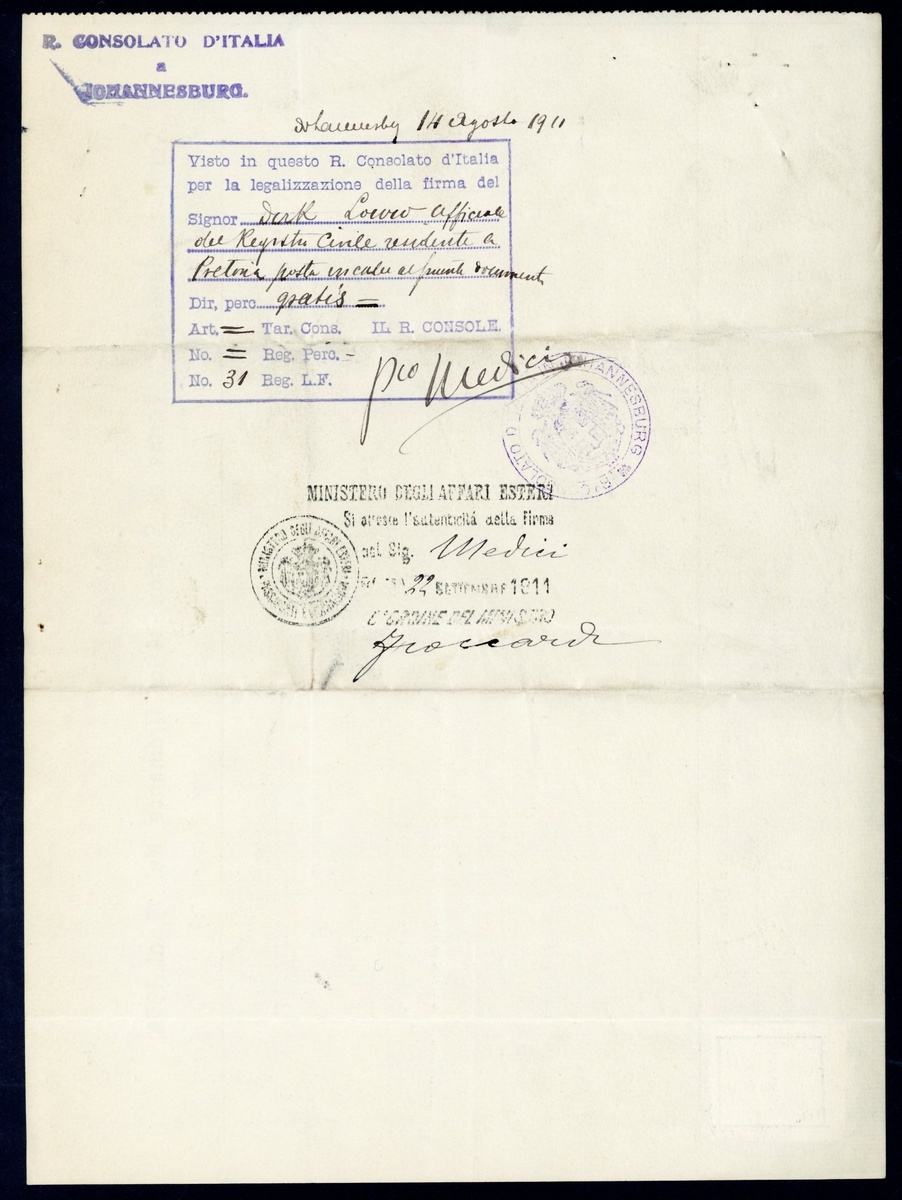 R. CONSOLATO D'ITALIA
a
JOHANNESBURG.
14 Agosto 1911
Visto in questo R. Consolato d'Italia
per la legalizzazione della firma del
Signor Officiale
del Registro Civile residente a
Pretoria posta in calce al document
Dir, perc. gratis =
Art. = Tar. Cons. IL R. CONSOLE.
No. = Reg. Perc. -
No. 31 Reg. L.F.
pro Medici
JOHANNESBURG
MINISTERO DEGLI AFFARI ESTERI
Si attesta l'autenticità della firma
del Sig. Medici
22 SETTEMBRE 1911
D'ORDINE DEL MINISTRO
MINISTERO DEGLI AFFARI ESTERI